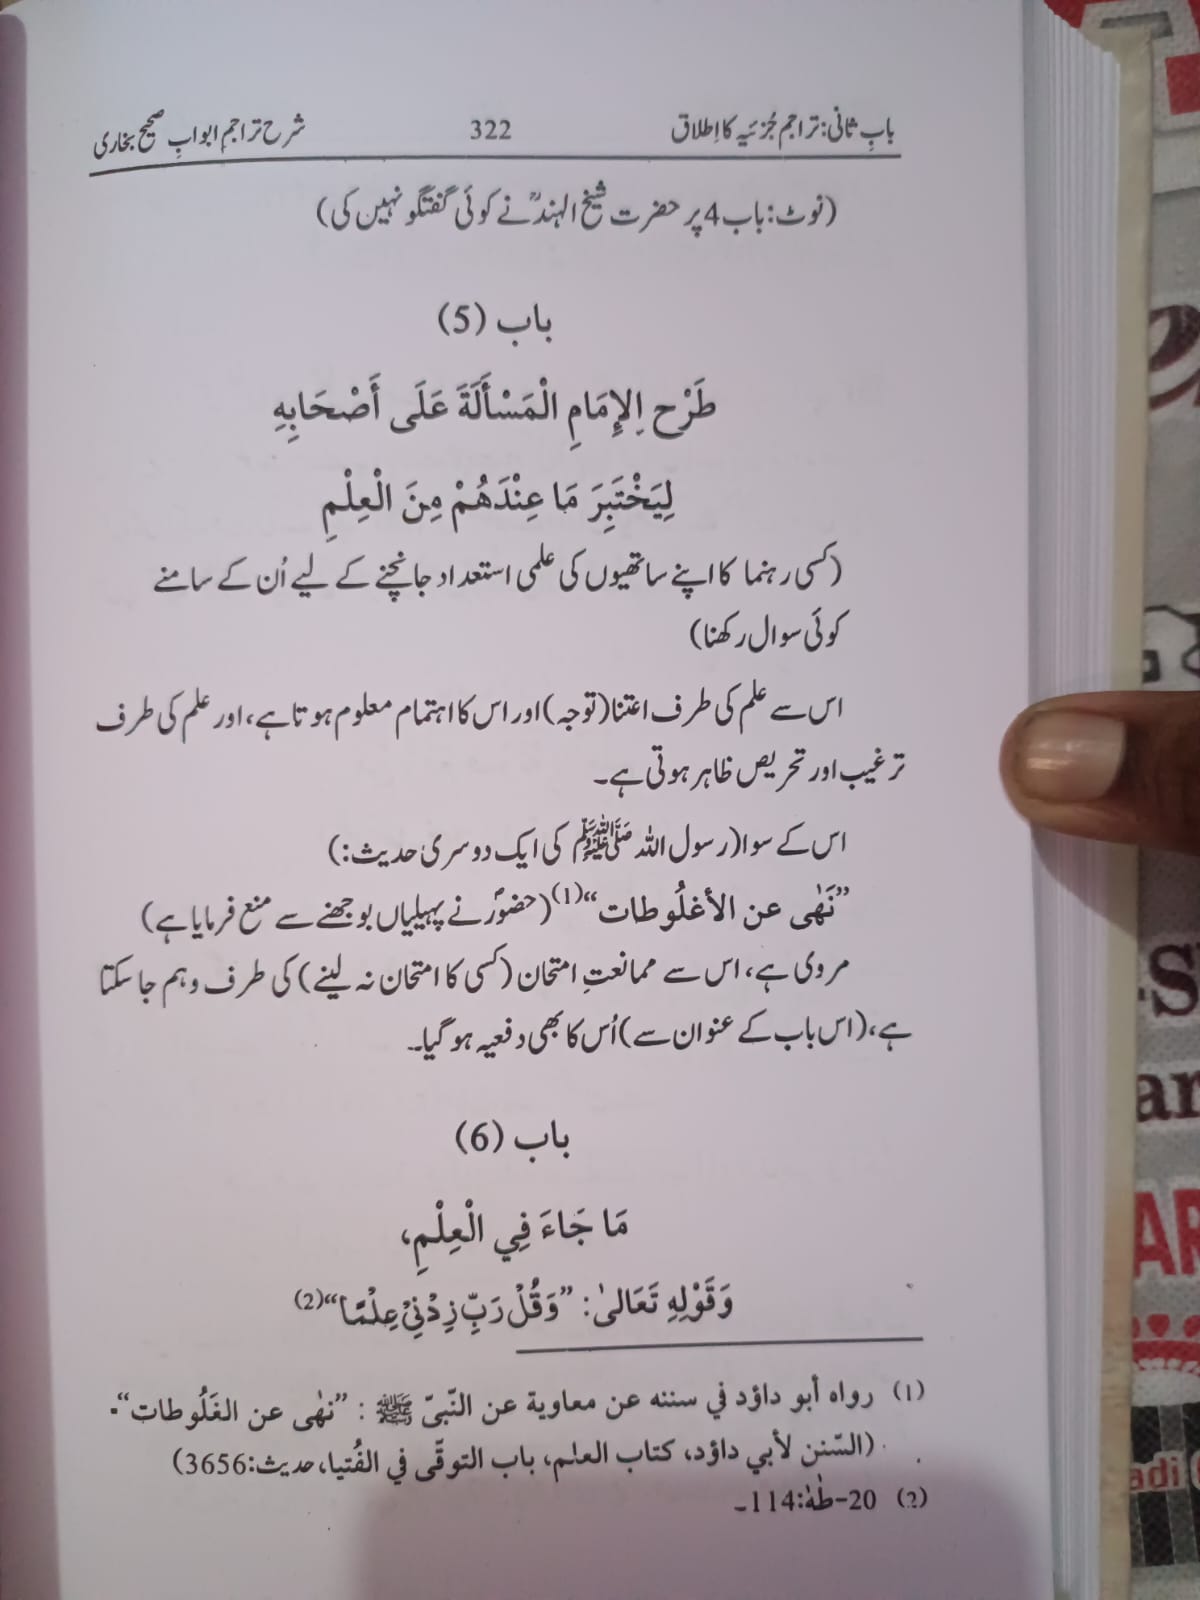 بابِ ثانی: تراجم جُزئیہ کا اِطلاق 322 شرح تراجم ابوابِ صحیح بخاری
(نوٹ: باب 4 پر حضرت شیخ الہندؒ نے کوئی گفتگو نہیں کی)
باب (5)
طَرْحِ الإِمَامِ الْمَسْأَلَةَ عَلَى أَصْحَابِهِ
لِيَخْتَبِرَ مَا عِنْدَهُمْ مِنَ الْعِلْمِ
(کسی رہنما کا اپنے ساتھیوں کی علمی استعداد جانچنے کے لیے اُن کے سامنے
کوئی سوال رکھنا)
اس سے علم کی طرف اعتنا (توجہ) اور اس کا اہتمام معلوم ہوتا ہے، اور علم کی طرف
ترغیب اور تحریص ظاہر ہوتی ہے۔
اس کے سوا (رسول اللہ ﷺ کی ایک دوسری حدیث:)
”نَهٰى عن الأغلُوطات“(1) (حضورؐ نے پہیلیاں بوجھنے سے منع فرمایا ہے)
مروی ہے، اس سے ممانعتِ امتحان (کسی کا امتحان نہ لینے) کی طرف وہم جا سکتا
ہے، (اس باب کے عنوان سے) اُس کا بھی دفعیہ ہو گیا۔
باب (6)
مَا جَاءَ فِي الْعِلْمِ،
وَقَوْلِهِ تَعَالىٰ: ”وَقُلْ رَبِّ زِدْنِيْ عِلْمًا“(2)
(1) رواه أبو داؤد في سننه عن معاوية عن النّبيّ ﷺ : ”نهٰى عن الغَلُوطات“۔
(السّنن لأبي داؤد، كتاب العلم، باب التوقّي في الفُتيا، حدیث: 3656)
(2) 20-طٰهٰ: 114۔
ES
AR
adi